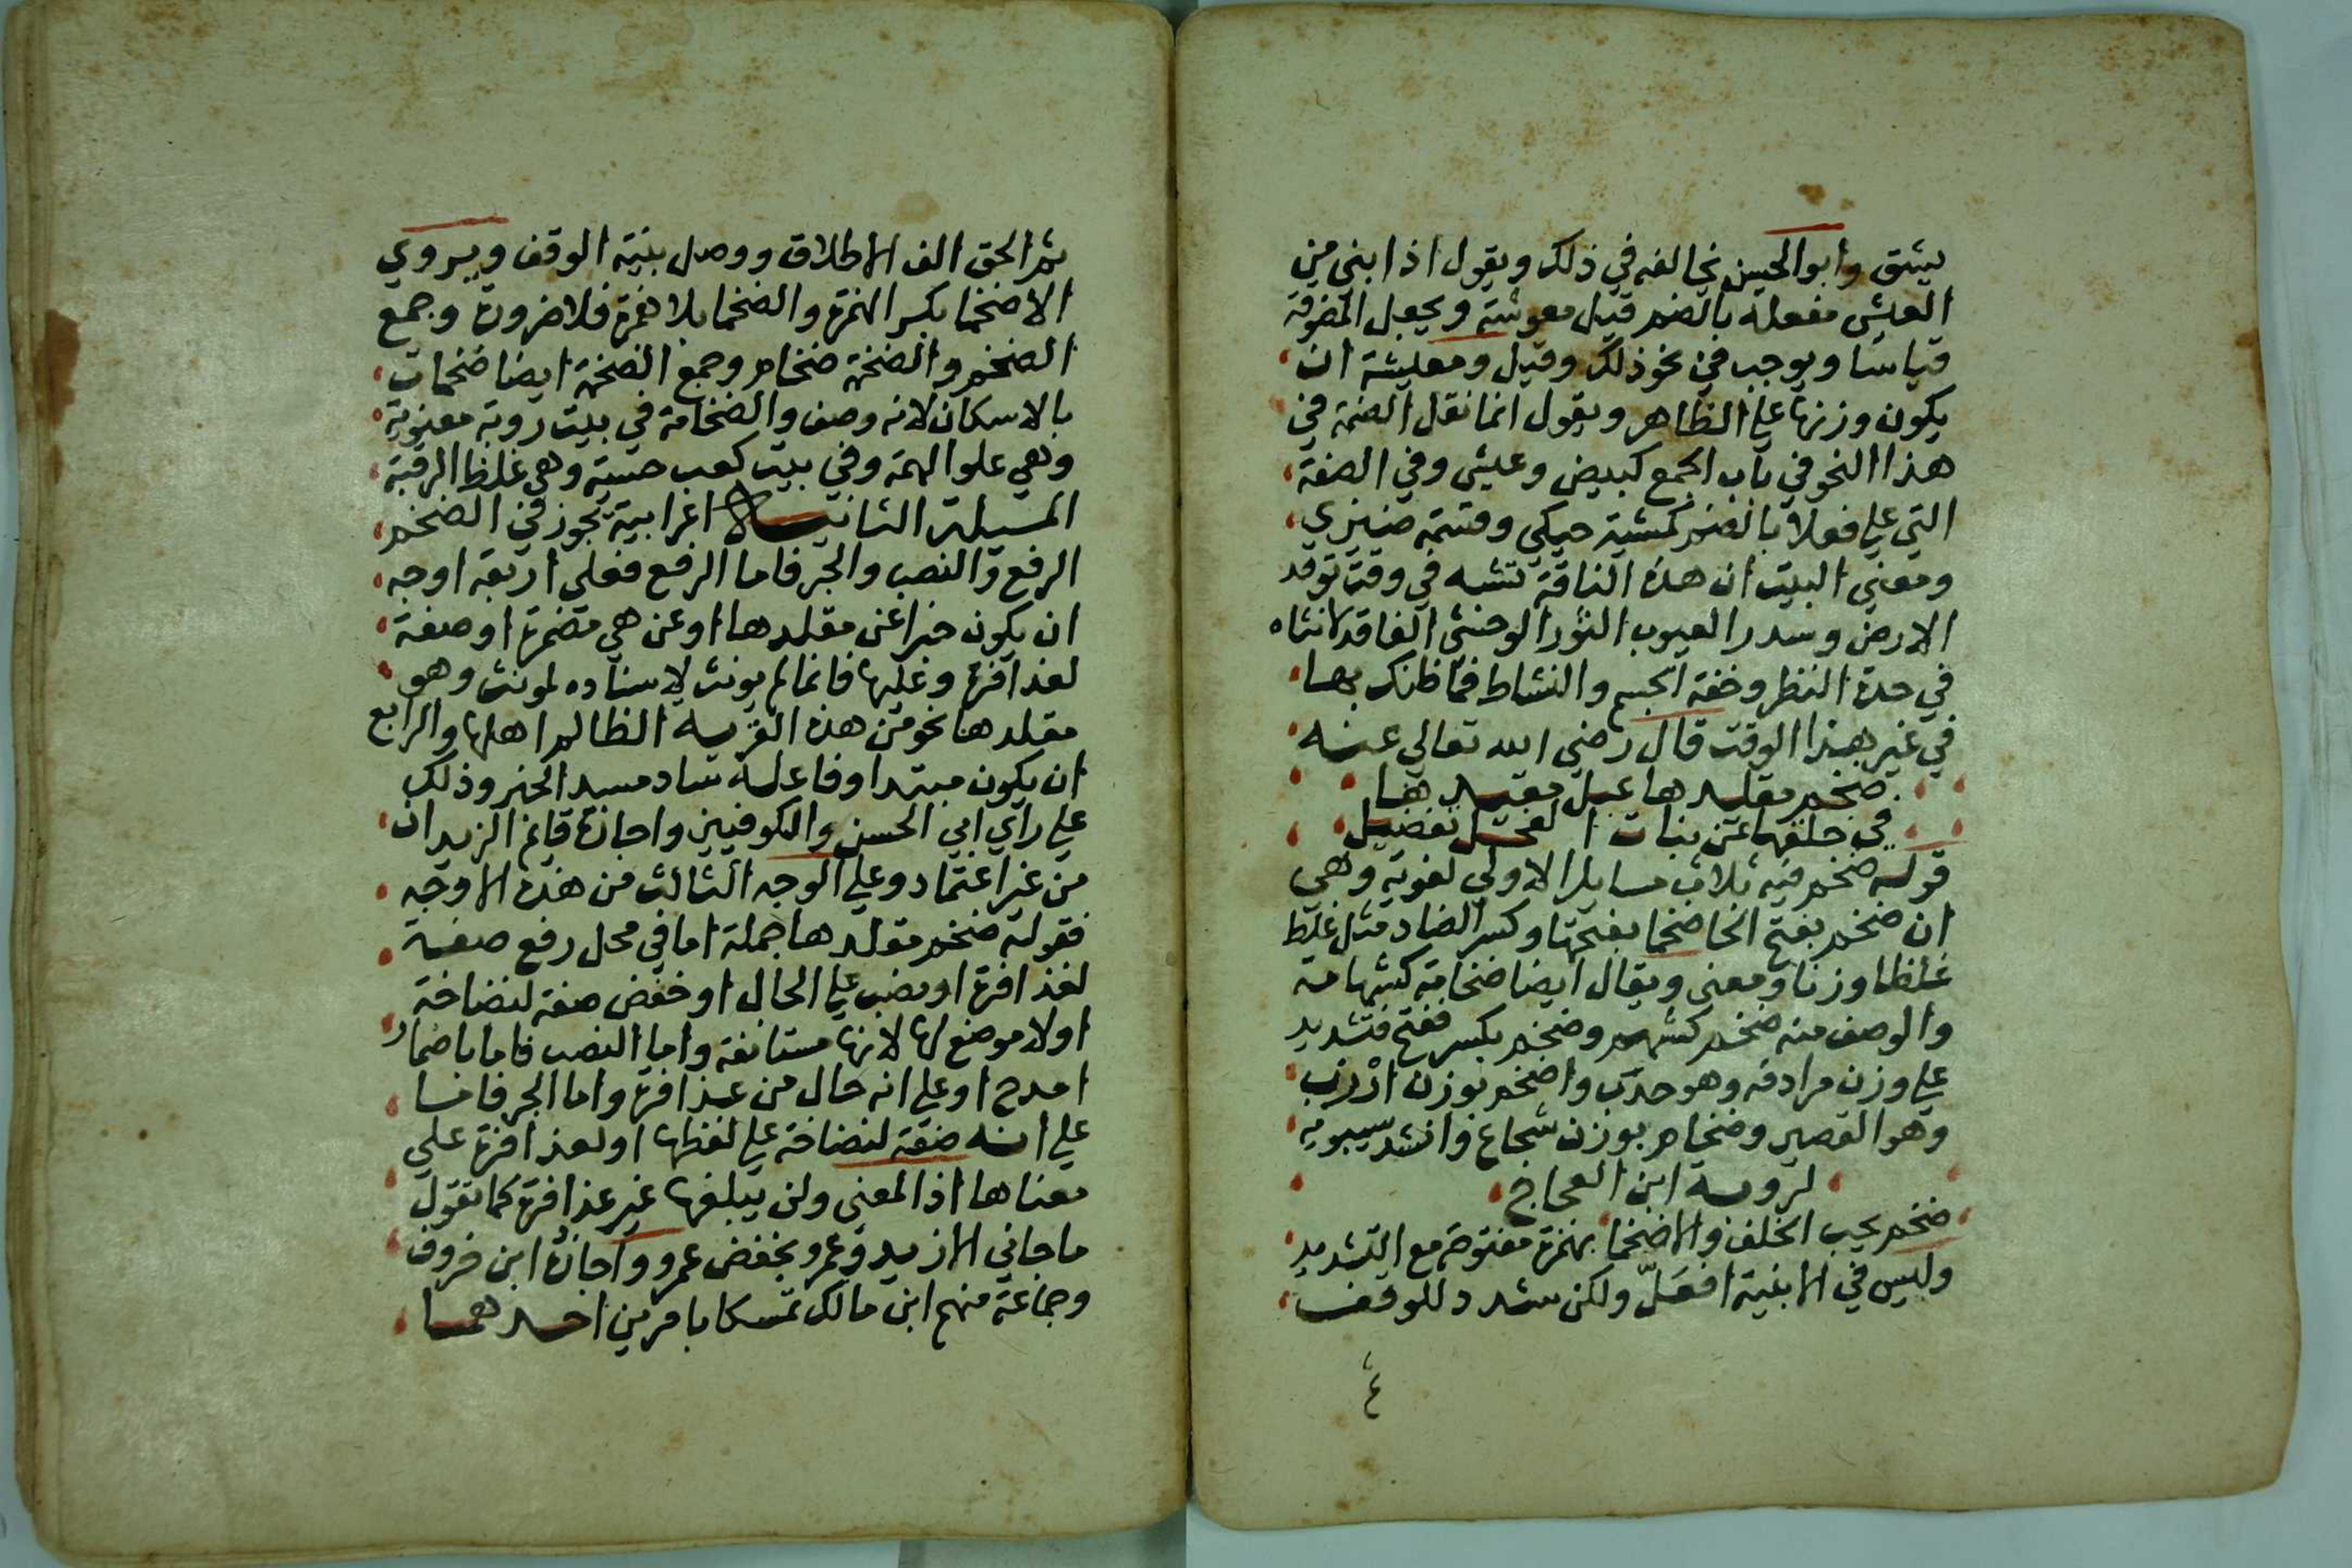 يشق وابو الحسن يخالفه في ذلك ويقول اذا بني من
العيش مفعلة بالضم قيل معوشة ويجعل المضوفة
قياسا ويوجب في نحو ذلك وقيل ومعيشة ان
يكون وزنها علي الظاهر ويقول انما نقل الضمة في
هذا النحو في باب الجمع كبيض وعيش وفي الصفة
التي علي فعلا بالضم كمشية حيكي وقسمة ضيزي
ومعني البيت ان هذه الناقة تشبه في وقت توقد
الارض وسدر العيوب الثور الوحشي الفاقد لانثاه
في حدة النظر وخفة الجسم والنشاط فما ظنك بها
في غير هذا الوقت قال رضي الله تعالي عنه
ضخم مقلدها عبل مقيدها
في خلقها عن بنات الفحل تفضيل
قوله ضخم فيه ثلاث مسايل الاولي لغوية وهي
ان ضخم بفتح الخا ضخما بفتحها وكسر الضاد مثل غلظ
غلظا وزنا ومعني ويقال ايضا ضخامة كشهامة
والوصف منه ضخم كشهم وضخم بكسر ففتح فتشديد
علي وزن مرادفه وهو خدب واضخم بوزن ارزب
وهو القصير وضخام بوزن شجاع وانشد سيبويه
لروبة ابن العجاج
ضخم يحب الخلف الاضخما بهمزة مفتوحة مع التشديد
وليس في الابنية افعلّ ولكن شدد للوقف
ثم الحق الف الاطلاق ووصل بنية الوقف ويروي
الاضخما بكسر الهمزة والضخما بلا همزة فلا ضرورة وجمع
الضخم والضخمة ضخام وجمع الضخمة ايضا ضخمات
بالاسكان لانه وصف والضخامة في بيت روبة معنوية
وهي علو الهمة وفي بيت كعب حسية وهي غلظ الرقبة
المسيلة الثانية اعرابية يجوز في الضخم
الرفع والنصب والجر فاما الرفع فعلي اربعة اوجه
ان يكون خبرا عن مقلدها او عن هي مضمرة او صفة
لعذافرة وعليها فانما لم يونث لاسناده لمونث وهو
مقلدها نحو من هذه القرية الظالم اهلها والرابع
ان يكون مبتدا وفاعله ساد مسد الخبر وذلك
علي راي ابي الحسن والكوفيين واجازة قايم الزيدان
من غير اعتماد وعلي الوجه الثالث من هذه الاوجه
فقوله ضخم مقلدها جملة اما في محل رفع صفة
لعذافرة او نصب علي الحال او خفض صفة لنضاخة
اولا موضع لها لانها مستانفة واما النصب فاما باضمار
امدح او علي انه حال من عذافرة واما الجر فاما
علي انه صفة لنضاخة علي لفظها او لعذافرة علي
معناها اذ المعني ولن يبلغها غير عذافرة كما تقول
ما جاني الا زيد وعمرو بخفض عمرو واجازة ابن خروف
وجماعة منهم ابن مالك تمسكا بامرين احدهما